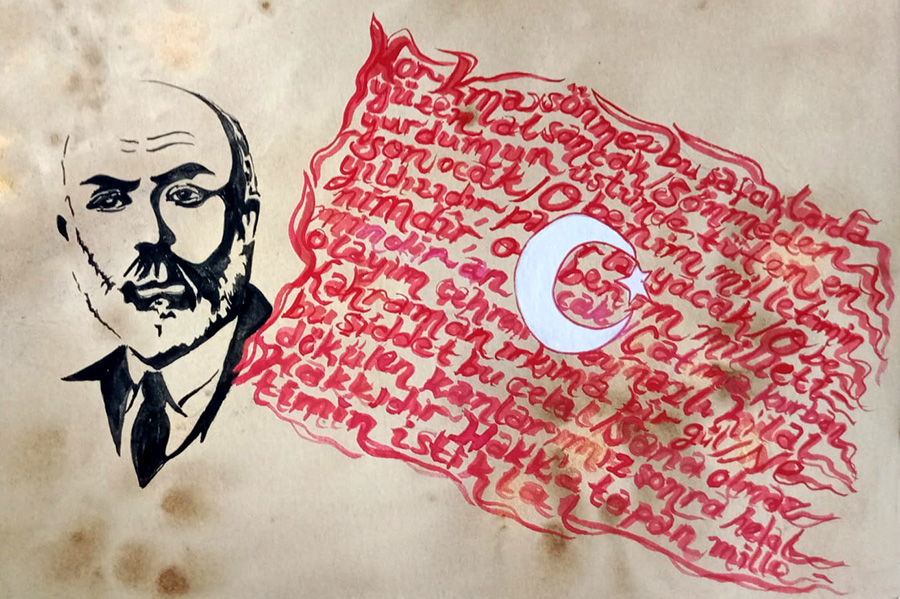 Korkma sönmez bu şafaklarda
yüzen al sancak / Sönmeden
yurdumun üstünde tüten en
son ocak / O benim milletimin
yıldızıdır pa yacak / O be
nimdir o benim milleti
mindir ancak kurban
olayım çehreni nazlı hilal
Kahraman ırkıma bir gül Ne
bu şiddet bu celal Sana olmaz
dökülen kanlarımız sonra helal
Hakkıdır Hakka tapan mille
timin istiklal